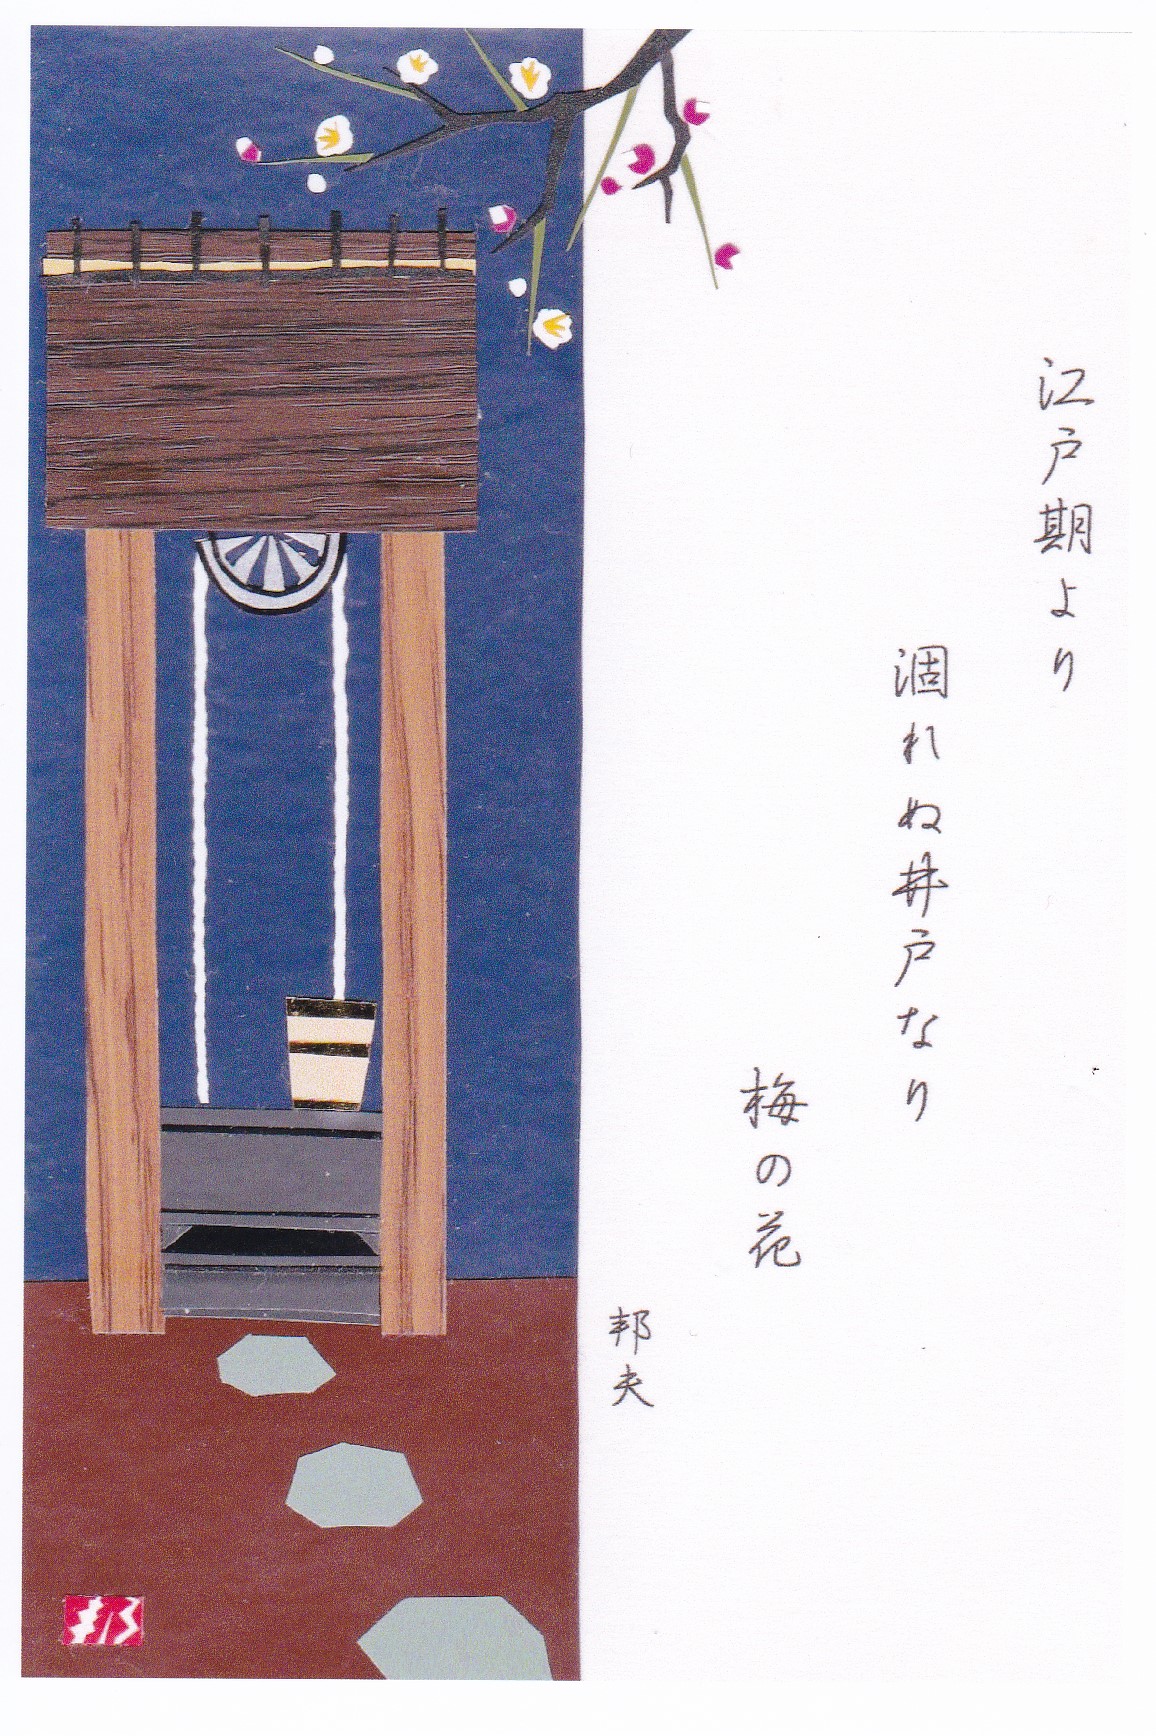 江戸期より
涸れぬ井戸なり
梅の花
邦夫